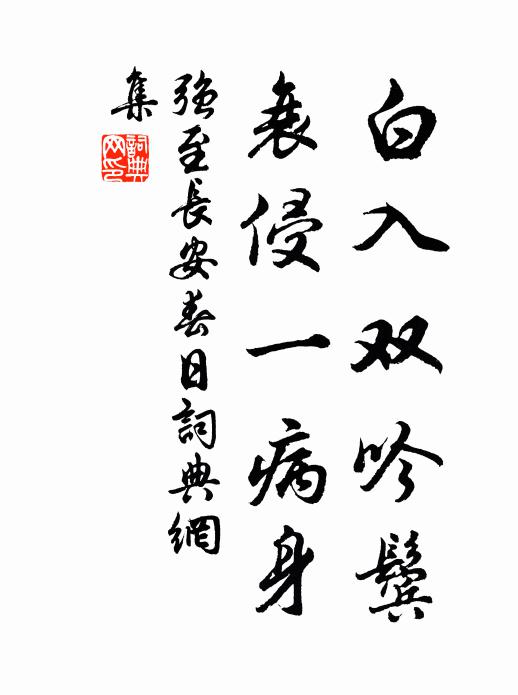 白入双吟鬓
衰侵一病身
强至長安春日詞典網
集
詞典
网印